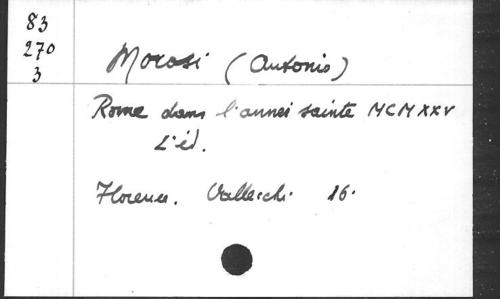 83
270
3
Morosi (Antonio)
Rome dans l'année sainte MCMXXV
2°éd.
Florence. Vallecchi. 16°